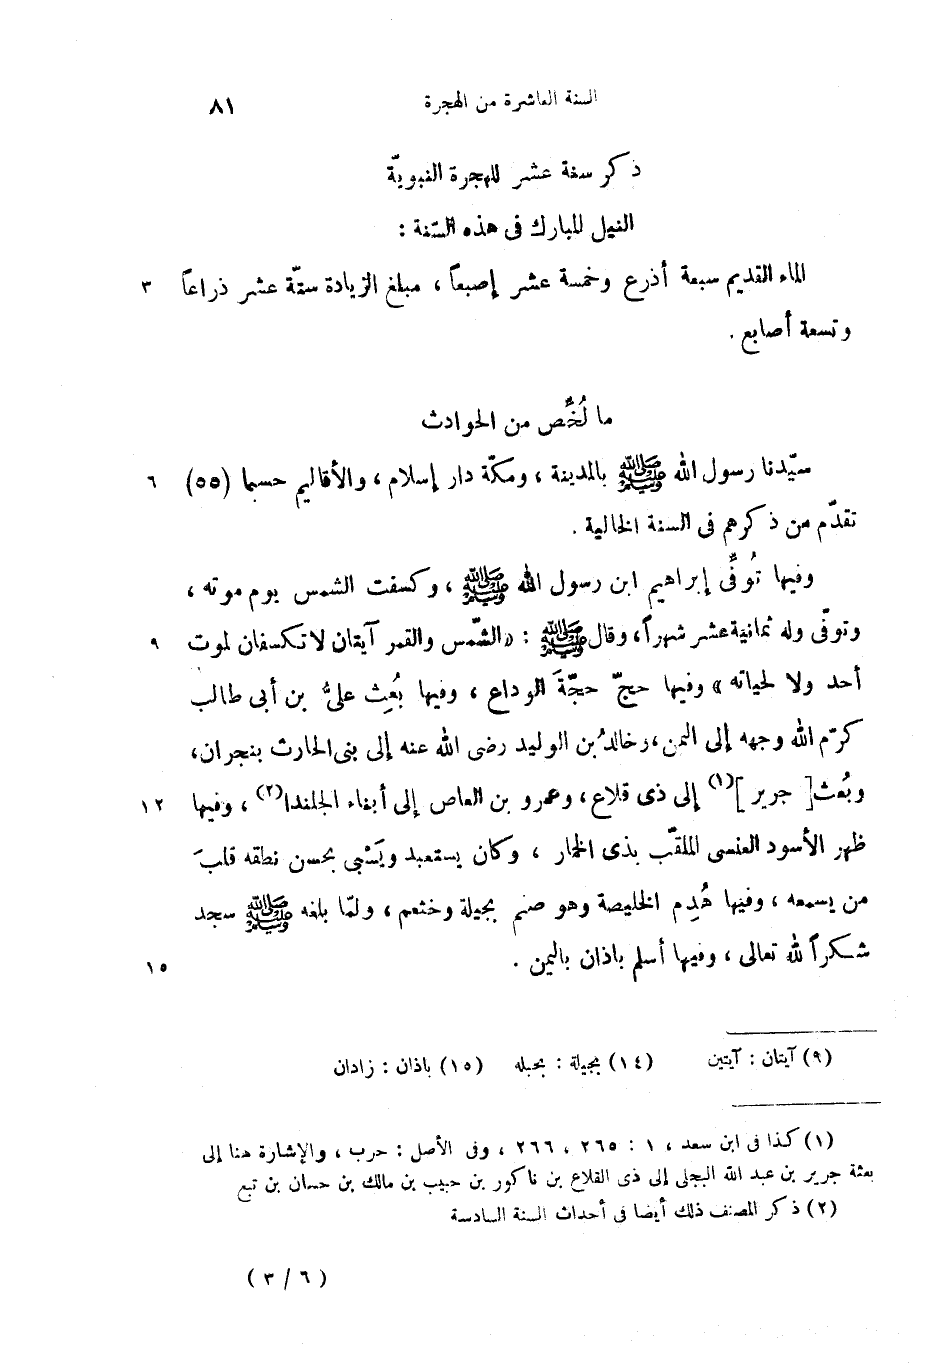 السنة العاشرة من الهجرة ٨١
ذكر سنة عشر للهجرة النبويّة
النيل المبارك فى هذه السّنة :
الماء القديم سبعة أذرع وخمسة عشر إصبعاً ، مبلغ الزيادة ستّة عشر ذراعاً ٣
وتسعة أصابع .
ما لُخِّص من الحوادث
سيّدنا رسول الله ﷺ بالمدينة ، ومكّة دار إسلام ، والأقاليم حسبما (٥٥) ٦
تقدّم من ذكرهم فى السنة الخالية .
وفيها تُوفِّى إبراهيم ابن رسول الله ﷺ ، وكسفت الشمس يوم موته ،
وتوفّى وله ثمانية عشر شهراً ، وقال ﷺ : « الشّمس والقمر آيتان لا تكسفان لموت ٩
أحد ولا لحياته » وفيها حجّ حجّةَ الوداع ، وفيها بُعِث علىُّ بن أبى طالب
كرّم الله وجهه إلى اليمن ، وخالدُ بن الوليد رضى الله عنه إلى بنى الحارث بنجران ،
وبُعث [ جرير ](١) إلى ذى قلاع ، وعمرو بن العاص إلى أبناء الجلندا(٢) ، وفيها ١٢
ظهر الأسود العنسى الملقّب بذى الخمار ، وكان يستعبد ويَسْبى بحسن نطقه قلبَ
من يسمعه ، وفيها هُدِم الخليصة وهو صنم بجيلة وخثعم ، ولمّا بلغه ﷺ سجد
شكراً لله تعالى ، وفيها أسلم باذان باليمن . ١٥
(٩) آيتان : آيتين (١٤) بجيلة : بحبله (١٥) باذان : زادان
(١) كذا فى ابن سعد ، ١ : ٢٦٥ ، ٢٦٦ ، وفى الأصل : حرب ، والإشارة هنا إلى
بعثة جرير بن عبد الله البجلى إلى ذى القلاع بن ناكور بن حبيب بن مالك بن حسان بن تبع
(٢) ذكر المصنف ذلك أيضا فى أحداث السنة السادسة
(٣/٦)